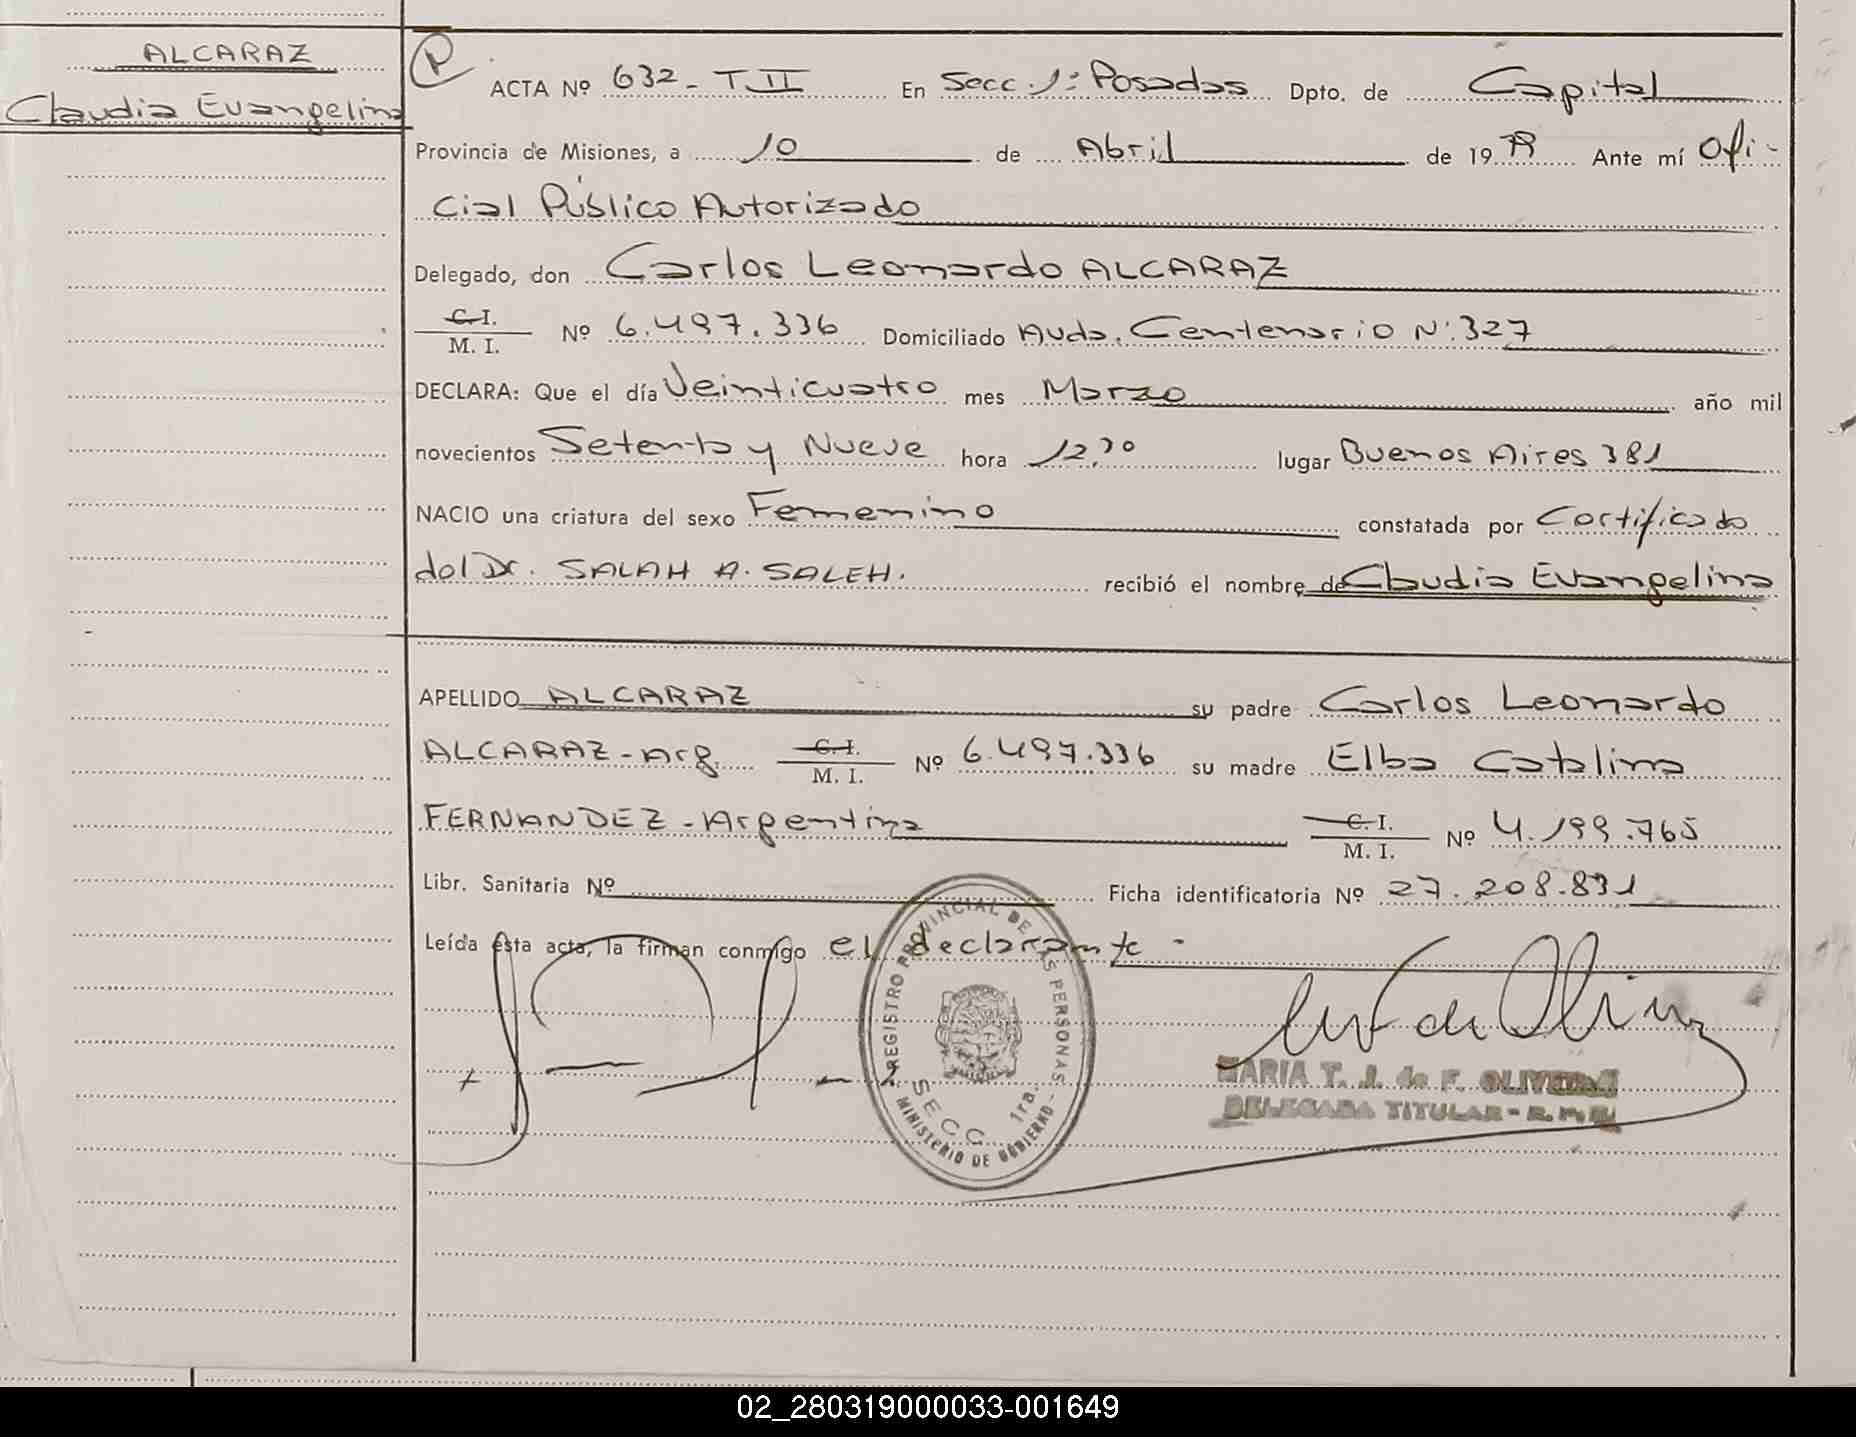 ALCARAZ
Claudia Evangelina
P
ACTA Nº 632 - T II En Secc. 1ª: Posadas Dpto. de Capital
Provincia de Misiones, a 10 de Abril de 1979 Ante mí Ofi-
cial Público Autorizado
Delegado, don Carlos Leonardo ALCARAZ
C. I.
M. I. Nº 6.497.336 Domiciliado Avda. Centenario Nº: 327
DECLARA: Que el día Veinticuatro mes Marzo año mil
novecientos Setenta y Nueve hora 12,30 lugar Buenos Aires 381
NACIO una criatura del sexo Femenino constatada por Certificado
del Dr. SALAH A. SALEH. recibió el nombre de Claudia Evangelina
APELLIDO ALCARAZ su padre Carlos Leonardo
ALCARAZ - Arg. C. I. M. I. Nº 6.497.336 su madre Elba Catalina
FERNANDEZ - Argentina C. I. M. I. Nº 4.199.765
Libr. Sanitaria Nº Ficha identificatoria Nº 27.208.831
Leída esta acta, la firman conmigo el declarante -
REGISTRO PROVINCIAL DE LAS PERSONAS
SECC 1ra.
MINISTERIO DE GOBIERNO
MARIA T. J. de F. OLIVEIRA
DELEGADA TITULAR -
02_280319000033-001649